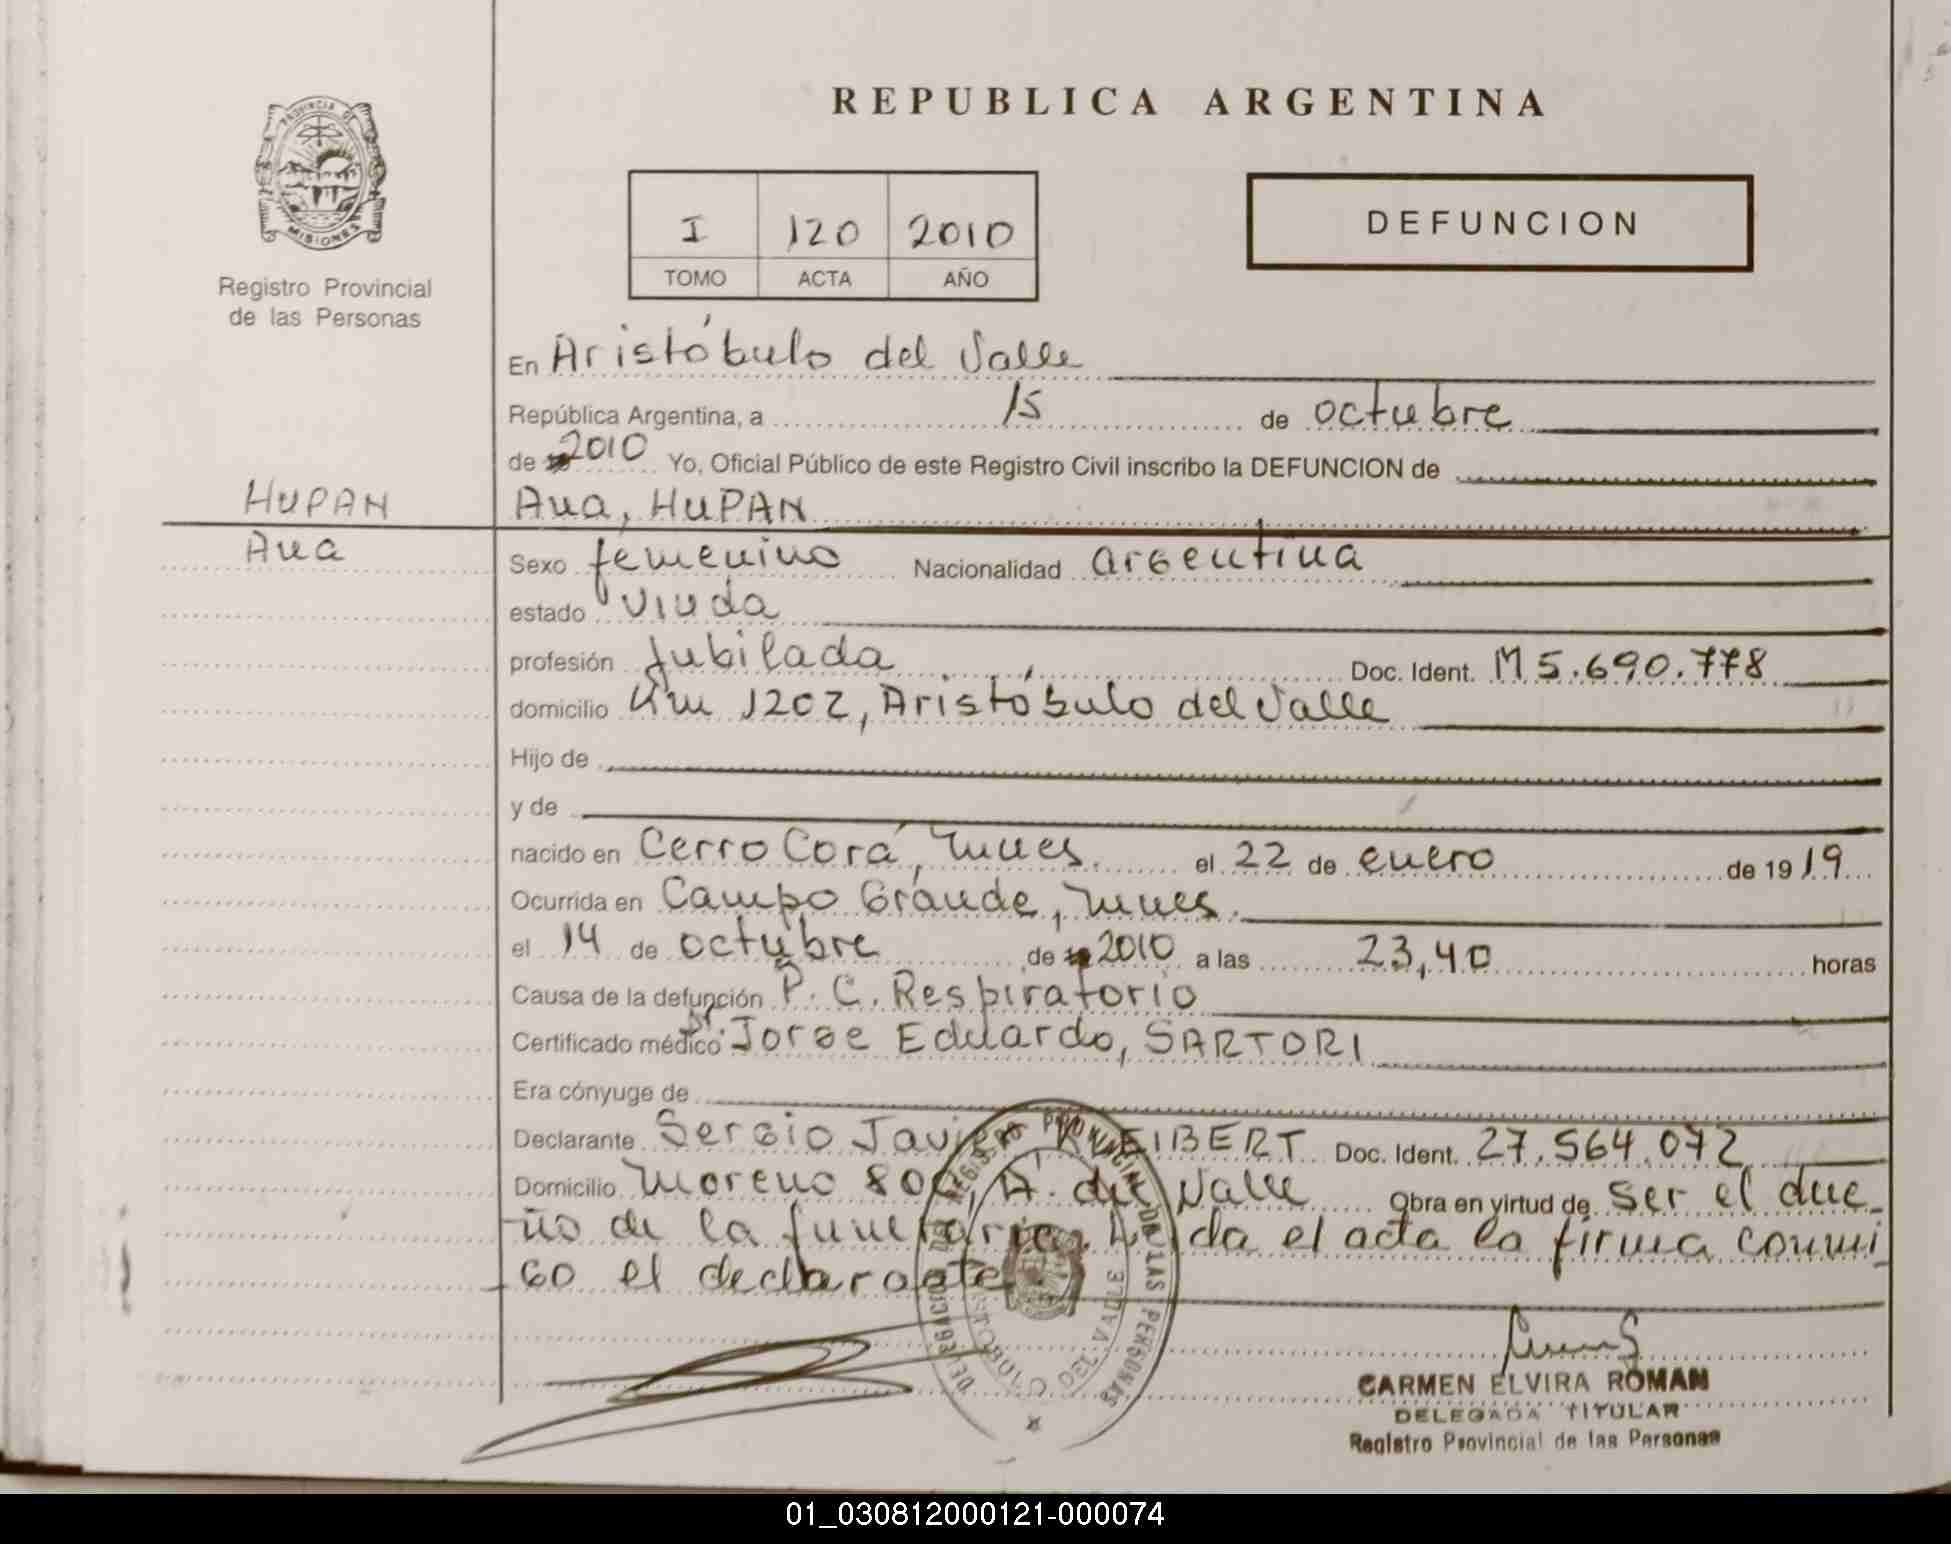 REPUBLICA ARGENTINA
PROVINCIA DE
MISIONES
Registro Provincial
de las Personas
I 120 2010
TOMO ACTA AÑO
DEFUNCION
En Aristóbulo del Valle
República Argentina, a 15 de octubre
de 2010 Yo, Oficial Público de este Registro Civil inscribo la DEFUNCION de
HUPAN
Ana, HUPAN
Ana
Sexo femenino Nacionalidad argentina
estado viuda
profesión Jubilada Doc. Ident. M 5.690.778
domicilio Km 1202, Aristóbulo del Valle
Hijo de
y de
nacido en Cerro Corá, Mnes. el 22 de enero de 1919
Ocurrida en Campo Grande, Mnes.
el 14 de octubre de 2010 a las 23,40 horas
Causa de la defunción P. C. Respiratorio
Certificado médico Dr. Jorge Eduardo, SARTORI
Era cónyuge de
Declarante Sergio Javier KLEIBERT Doc. Ident. 27.564.072
Domicilio Moreno A. del Valle Obra en virtud de ser el due-
ño de la funeraria. Leida el acta la firma conmi
go el declarante.
DELEGACION DEL REGISTRO PROVINCIAL DE LAS PERSONAS
ARISTOBULO DEL VALLE
CARMEN ELVIRA ROMAN
DELEGADA TITULAR
Registro Provincial de las Personas
01_030812000121-000074